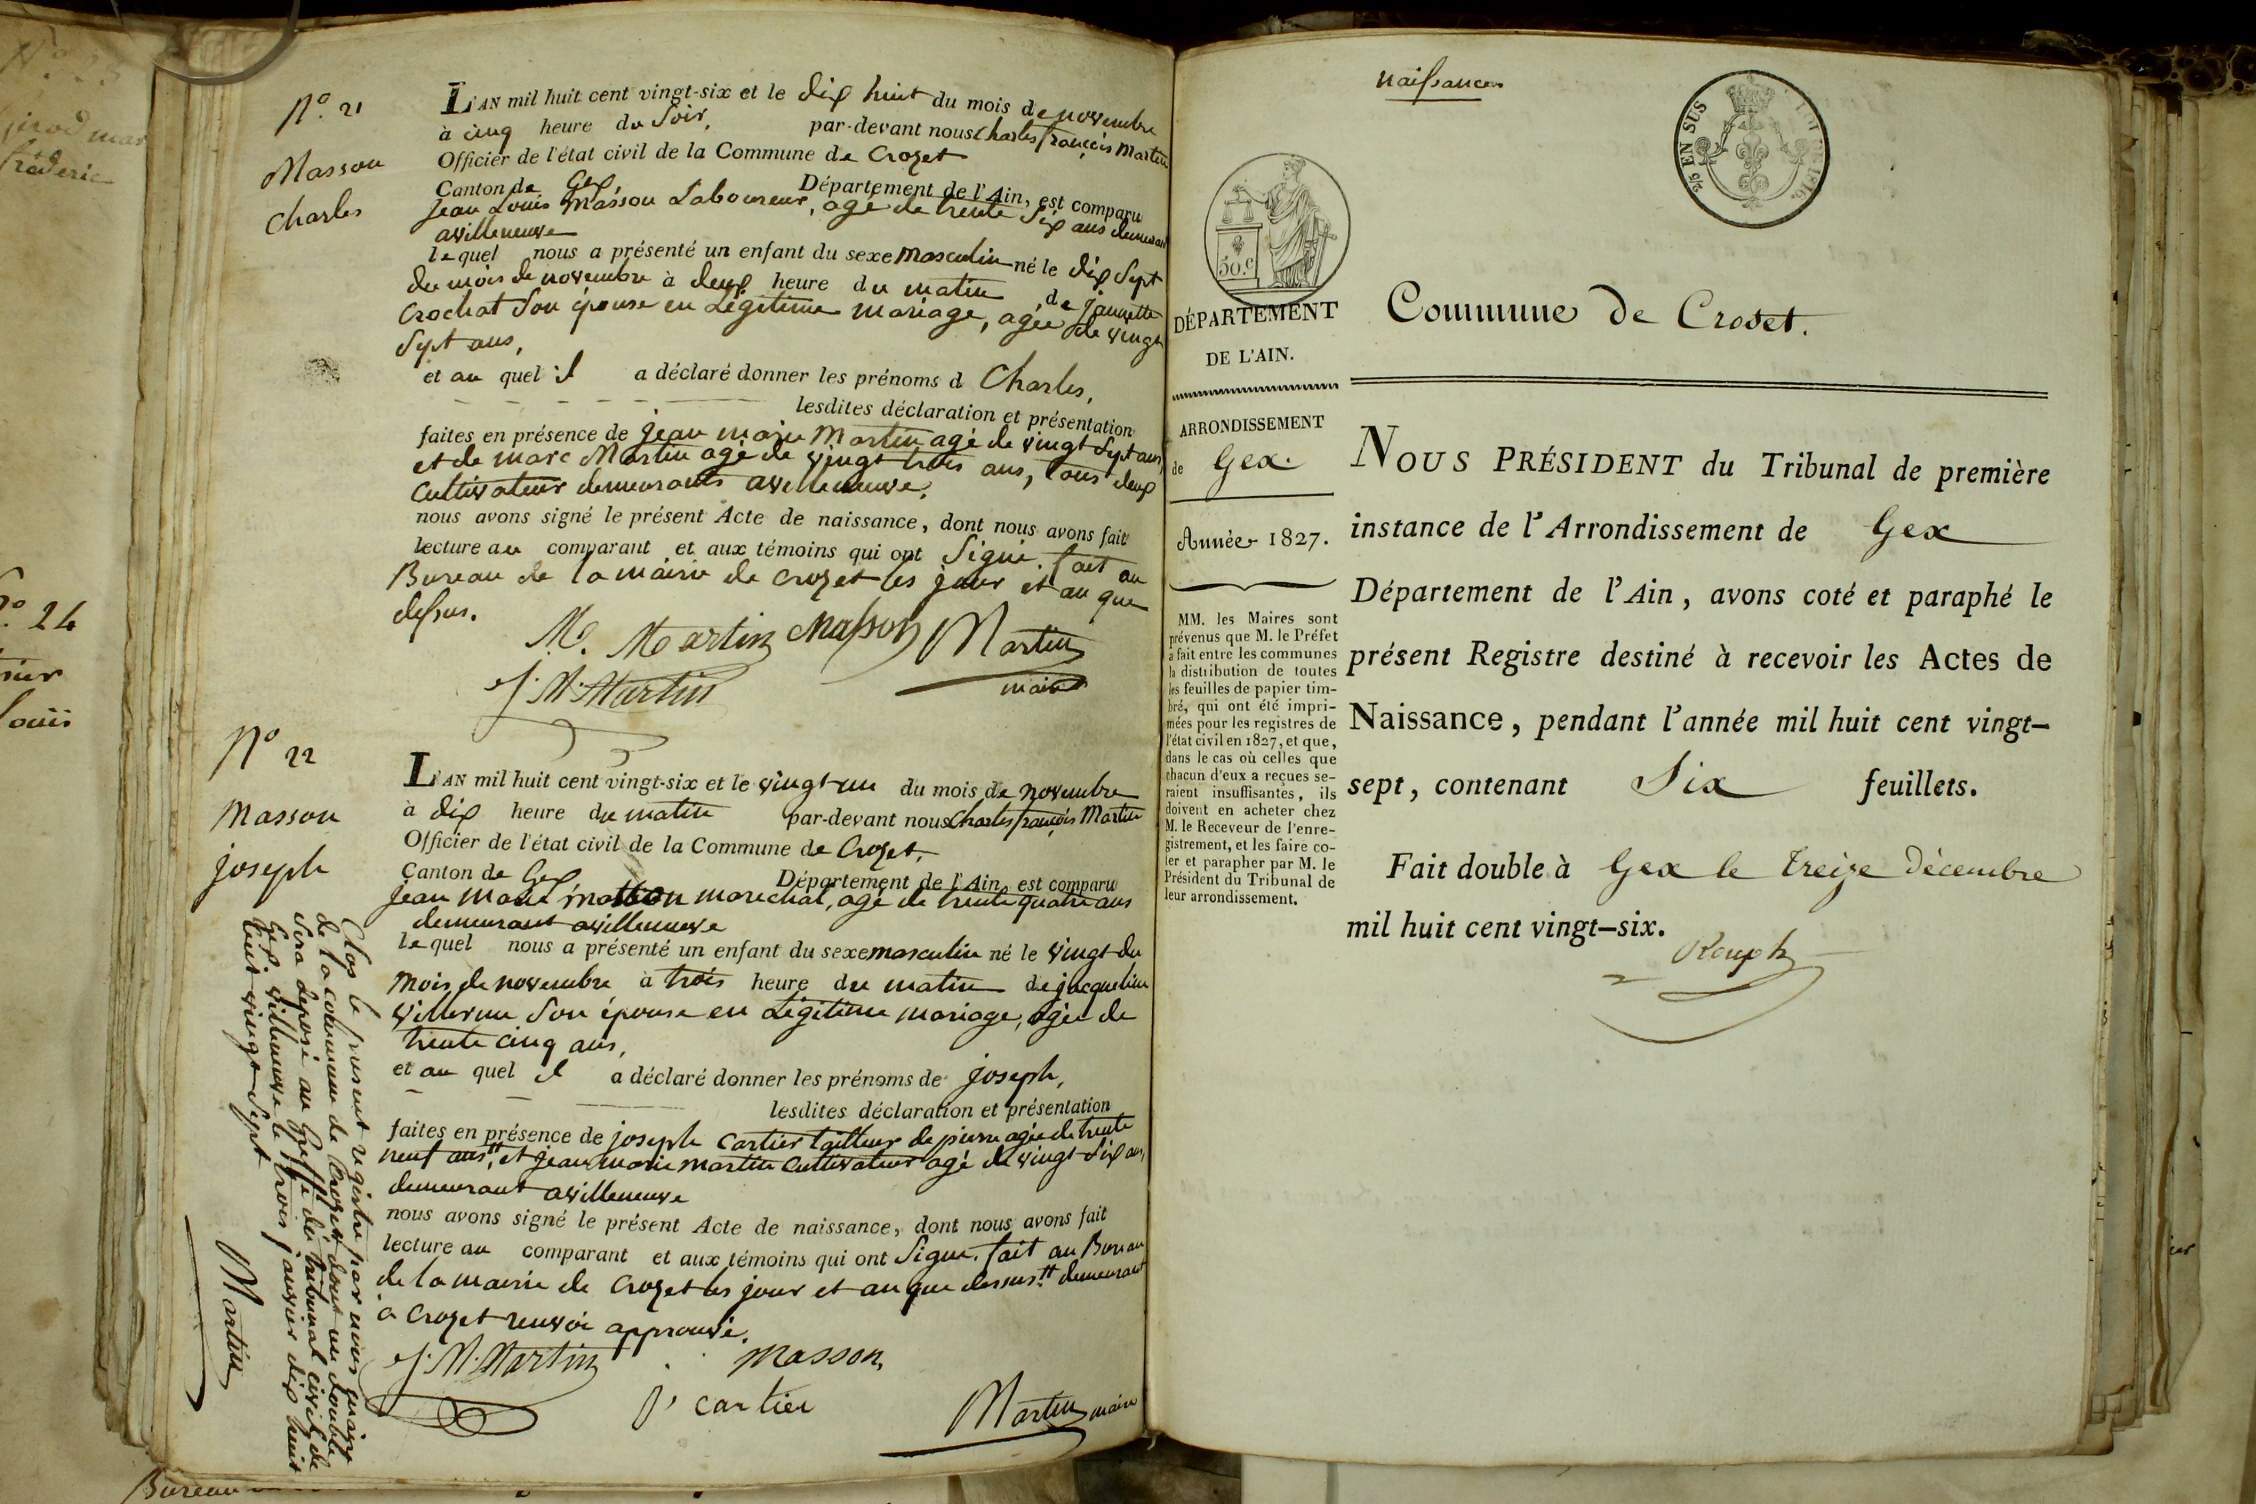 N.º 21
Masson
Charles
L'AN mil huit cent vingt-six et le dix huit du mois de novembre
à cinq heure du Soir, par-devant nous Charles françois Martin
Officier de l'état civil de la Commune de Crozet
Canton de Gex Département de l'Ain, est comparu
Jean Louis Masson Laboureur, agé de trente Six ans demeurant
avilleneuve
lequel nous a présenté un enfant du sexe masculin né le dix Sept
du mois de novembre à deux heure du matin, de jannette
Crochat Son épouse en Légitime mariage, agée de vingt
Sept ans,
et au quel il a déclaré donner les prénoms d Charles,
lesdites déclaration et présentation
faites en présence de jean marie Martin agé de vingt Sept ans,
et de marc Martin agé de vingt trois ans, tous deux
Cultivateur demeurants avilleneuve,
nous avons signé le présent Acte de naissance, dont nous avons fait
lecture au comparant et aux témoins qui ont Signé. fait au
Bureau de la mairie de Crozet les jour et an que
dessus.
M. Martin Masson Martin
J. M. Martin maire
Nº 22
Masson
joseph
L'AN mil huit cent vingt-six et le vingt un du mois de novembre
à dix heure du matin par-devant nous Charles françois Martin
Officier de l'état civil de la Commune de Crozet,
Canton de Gex Département de l'Ain est comparu
Jean Marie masson marechal, agé de trente quatre ans
demeurant avilleneuve
lequel nous a présenté un enfant du sexe masculin né le vingt du
mois de novembre à trois heure du matin de jacqueline
Son épouse en Légitime mariage, agée de
trente cinq ans,
et au quel il a déclaré donner les prénoms de joseph,
lesdites déclaration et présentation
faites en présence de joseph Cartier tailleur de pierre agée de trente
neuf ans, et jean marie martin Cultivateur agé de vingt Six ans,
demeurant avilleneuve
nous avons signé le présent Acte de naissance, dont nous avons fait
lecture au comparant et aux témoins qui ont Signé. fait au Bureau
de la mairie de Crozet les jour et an que dessus. demeurant
a Crozet renvoi approuvé.
J. M. Martin Masson,
J. cartier
Martin maire
Clos le present registre par nous maire
de la commune de Crozet dont un double
Sera deposé au Greffe du tribunal civil de
Gex villeneuve le trois janvier dix huit
Cent vingt Sept
Martin
Nº 24
Louis
Bureau
naissances
2/5 EN SUS
LOI DE 1816.
50.c
DÉPARTEMENT
DE L'AIN.
ARRONDISSEMENT
de Gex.
Année 1827.
MM. les Maires sont
prévenus que M. le Préfet
a fait entre les communes
la distribution de toutes
les feuilles de papier tim-
bré, qui ont été impri-
mées pour les registres de
l'état civil en 1827, et que,
dans le cas où celles que
chacun d'eux a reçues se-
raient insuffisantes, ils
doivent en acheter chez
M. le Receveur de l'enre-
gistrement, et les faire co-
ter et parapher par M. le
Président du Tribunal de
leur arrondissement.
Commune de Croset.
NOUS PRÉSIDENT du Tribunal de première
instance de l'Arrondissement de Gex
Département de l'Ain, avons coté et paraphé le
présent Registre destiné à recevoir les Actes de
Naissance, pendant l'année mil huit cent vingt-
sept, contenant Six feuillets.
Fait double à Gex le treize décembre
mil huit cent vingt-six.